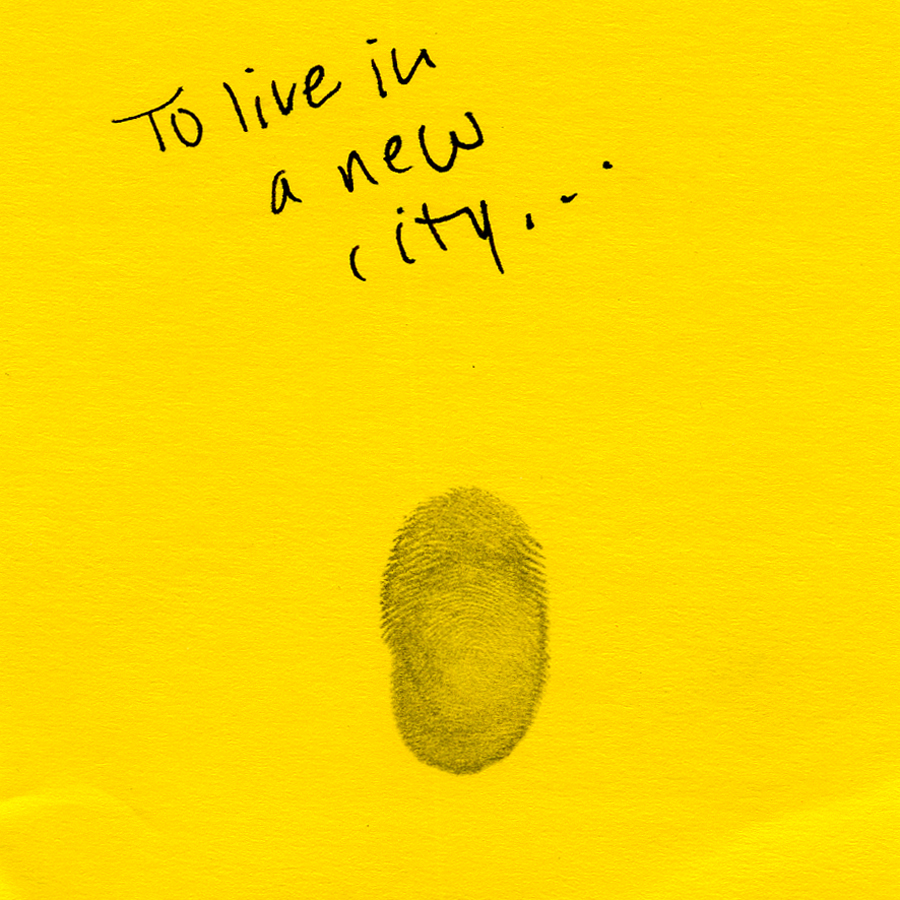 To live in
a new
city...